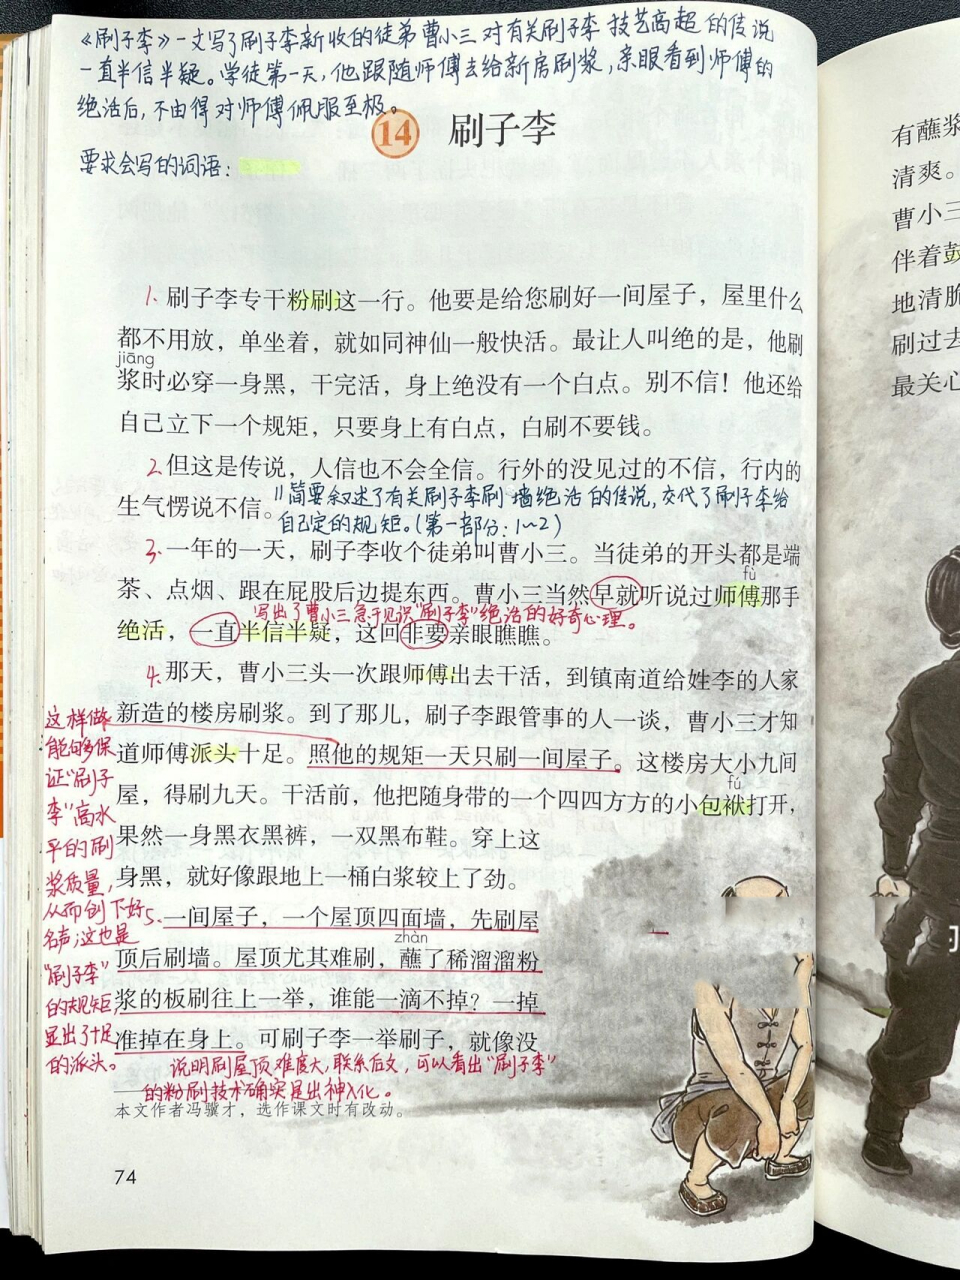 《刷子李》一文写了刷子李新收的徒弟曹小三对有关刷子李技艺高超的传说
一直半信半疑。学徒第一天,他跟随师傅去给新房刷浆,亲眼看到师傅的
绝活后,不由得对师傅佩服至极。
14 刷子李
要求会写的词语:
1. 刷子李专干粉刷这一行。他要是给您刷好一间屋子,屋里什么
都不用放,单坐着,就如同神仙一般快活。最让人叫绝的是,他刷
jiāng
浆时必穿一身黑,干完活,身上绝没有一个白点。别不信!他还给
自己立下一个规矩,只要身上有白点,白刷不要钱。
2. 但这是传说,人信也不会全信。行外的没见过的不信,行内的
生气愣说不信。
∥简要叙述了有关刷子李刷墙绝活的传说,交代了刷子李给
自己定的规矩。(第一部分:1~2)
3. 一年的一天,刷子李收个徒弟叫曹小三。当徒弟的开头都是端
fù
茶、点烟、跟在屁股后边提东西。曹小三当然早就听说过师傅那手
写出了曹小三急于见识"刷子李"绝活的好奇心理。
绝活,一直半信半疑,这回非要亲眼瞧瞧。
4. 那天,曹小三头一次跟师傅出去干活,到镇南道给姓李的人家
新造的楼房刷浆。到了那儿,刷子李跟管事的人一谈,曹小三才知
道师傅派头十足。照他的规矩一天只刷一间屋子。这楼房大小九间
fú
屋,得刷九天。干活前,他把随身带的一个四四方方的小包袱打开,
果然一身黑衣黑裤,一双黑布鞋。穿上这
身黑,就好像跟地上一桶白浆较上了劲。
5. 一间屋子,一个屋顶四面墙,先刷屋
zhàn
顶后刷墙。屋顶尤其难刷,蘸了稀溜溜粉
浆的板刷往上一举,谁能一滴不掉?一掉
准掉在身上。可刷子李一举刷子,就像没
这样做
能够保
证"刷子
李"高水
平的刷
浆质量,
从而创下好
名声;这也是
"刷子李"
的规矩,
显出了十足
的派头。
说明刷屋顶难度大,联系后文,可以看出"刷子李"
的粉刷技术确实是出神入化。
本文作者冯骥才,选作课文时有改动。
74
有蘸浆
清爽。
曹小三
伴着鼓
地清脆
刷过去
最关心